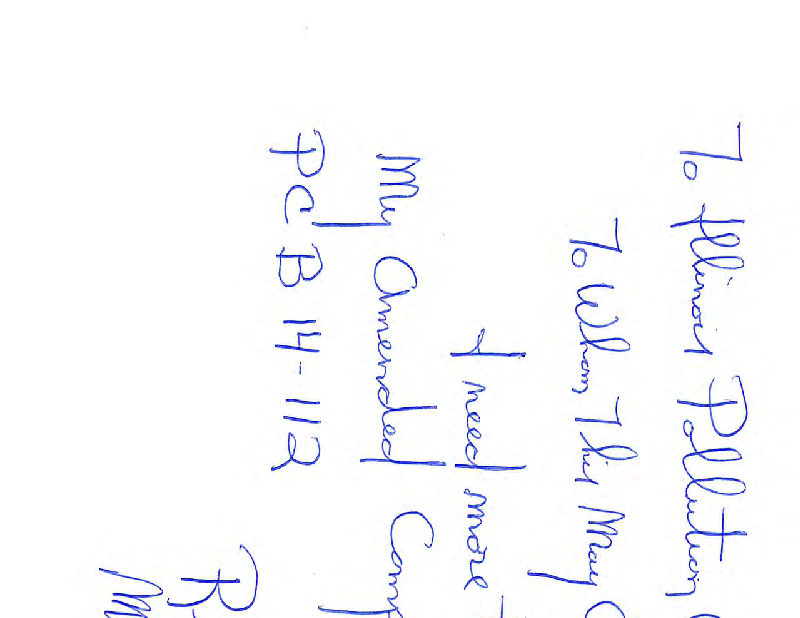 To Illinois Pollution
To Whom This May
I need more
My Amended Comp
PCB 14-112